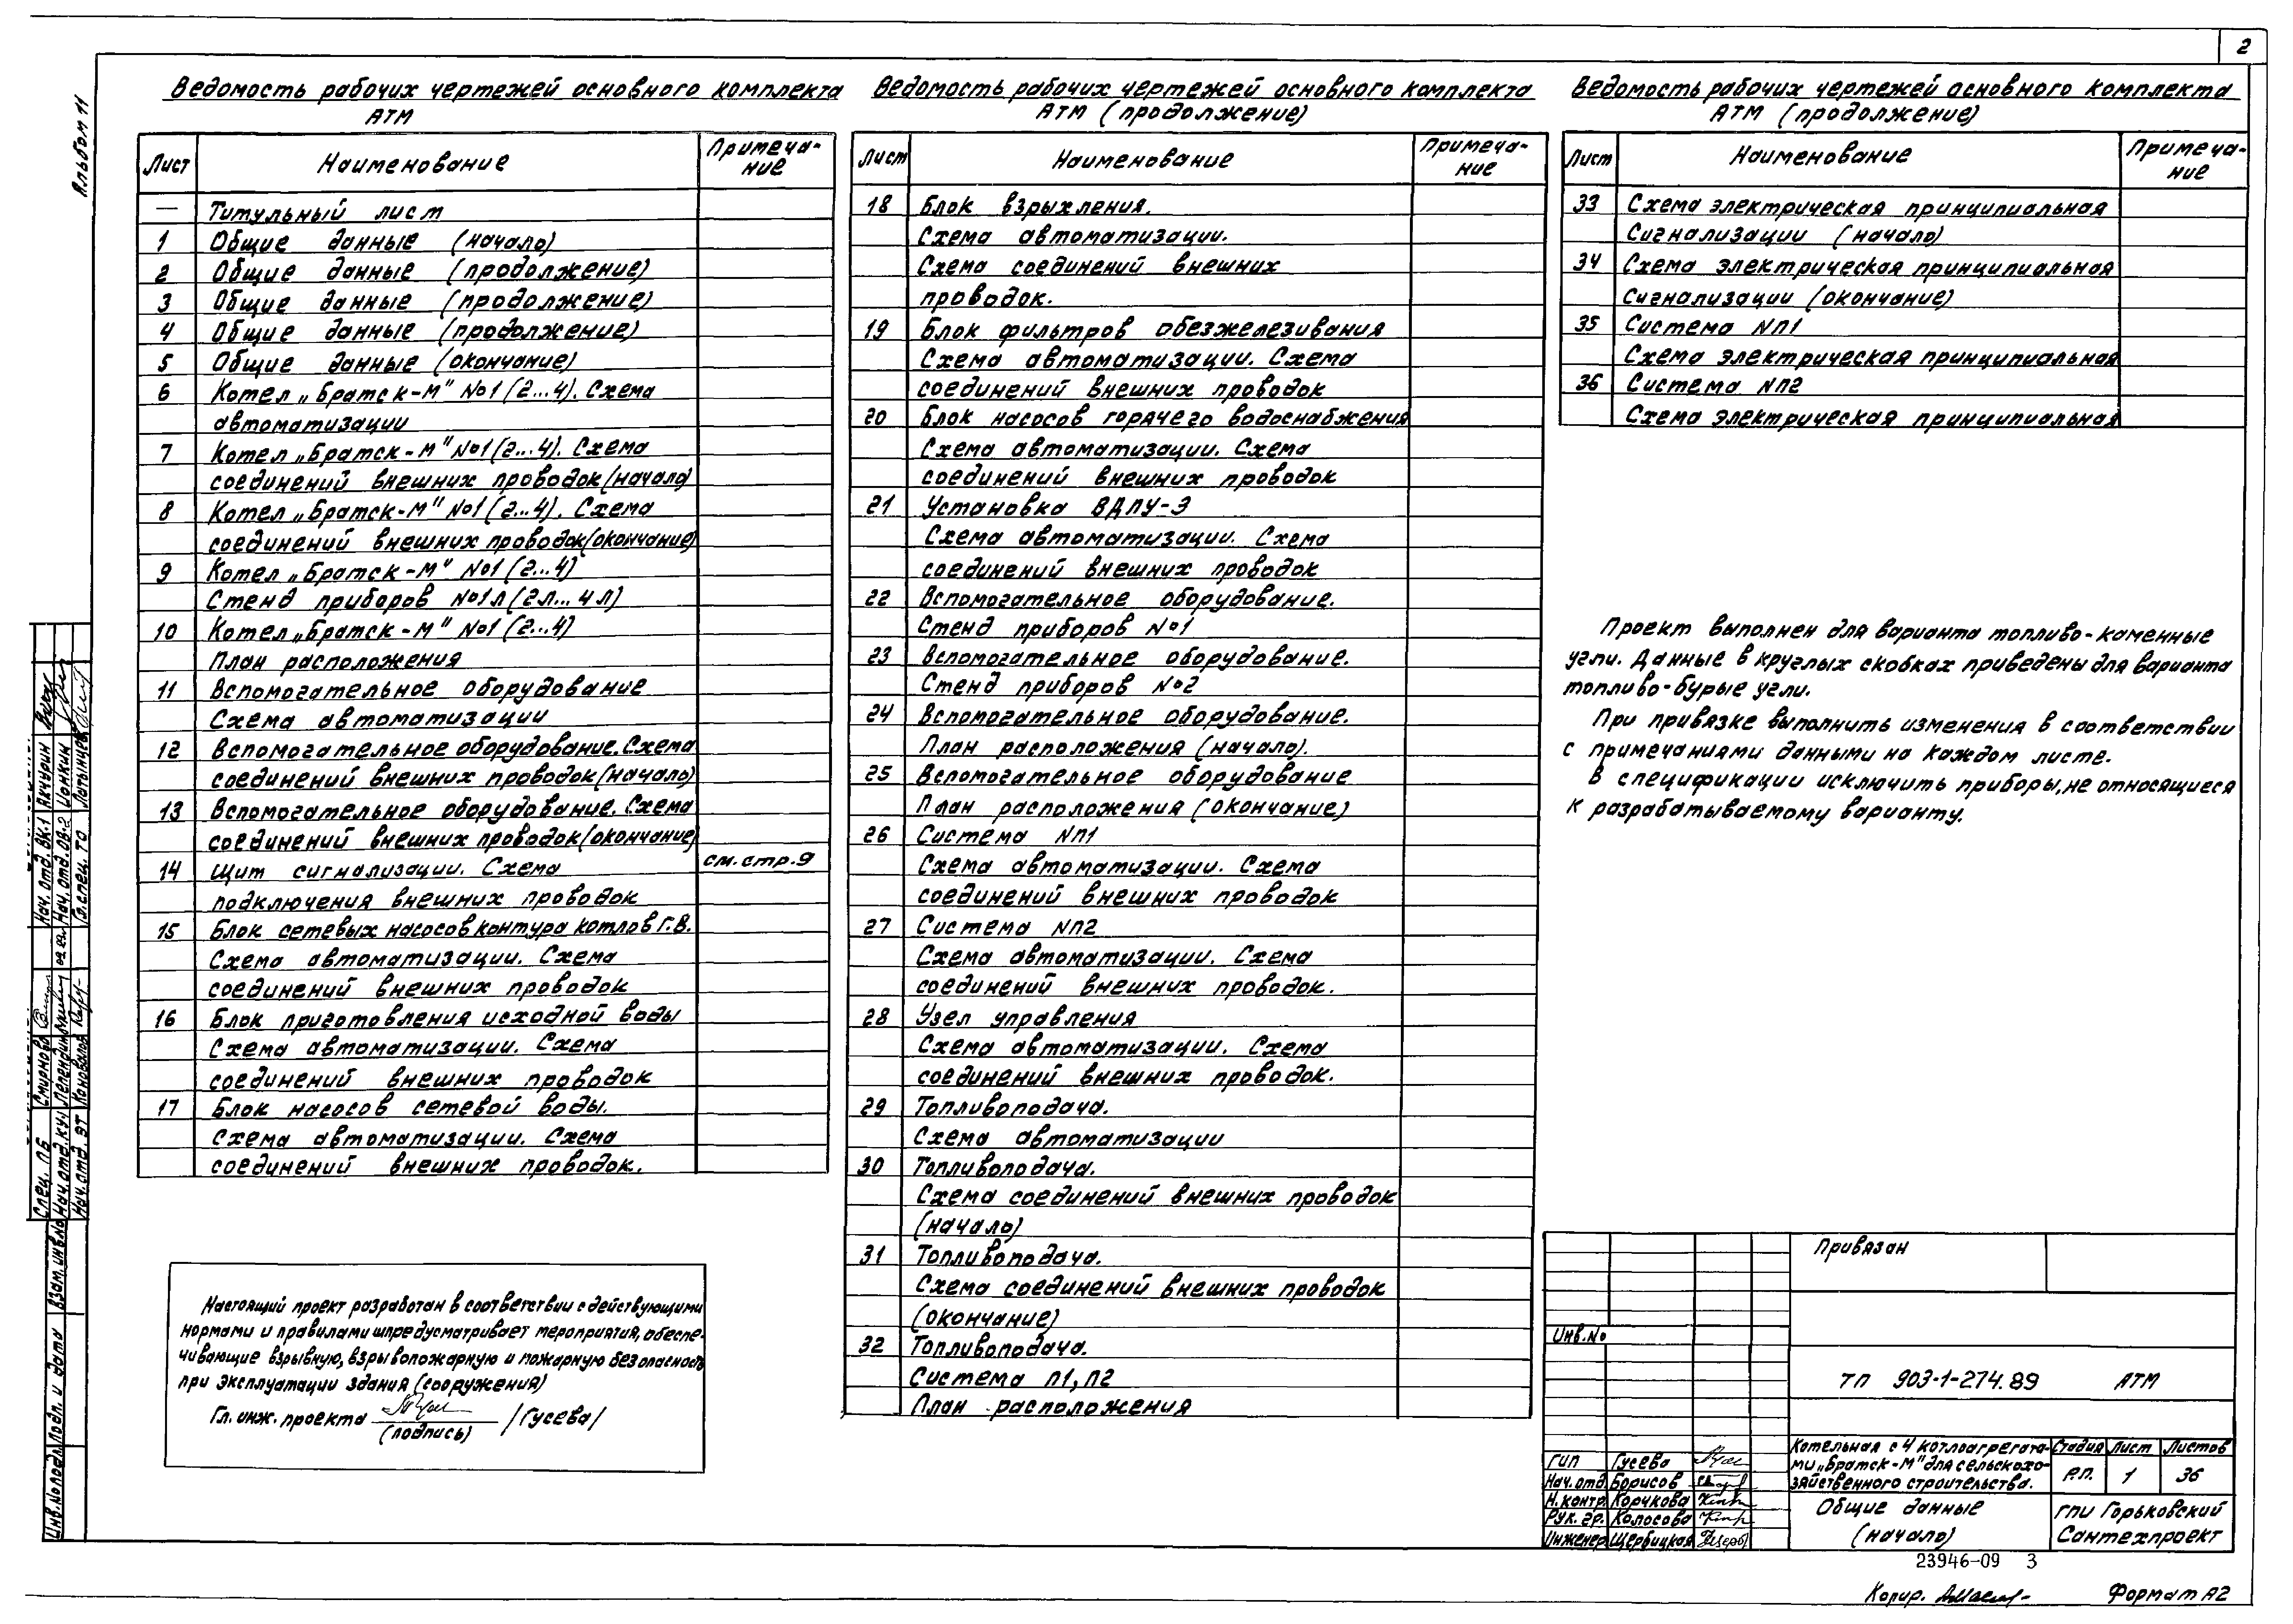 2
Альбом 11
Ведомость рабочих чертежей основного комплекта
АТМ
Лист Наименование Примеча-
ние
— Титульный лист
1 Общие данные (начало)
2 Общие данные (продолжение)
3 Общие данные (продолжение)
4 Общие данные (продолжение)
5 Общие данные (окончание)
6 Котел „Братск-М" №1 (2...4). Схема
автоматизации
7 Котел „Братск-М" №1 (2...4). Схема
соединений внешних проводок (начало)
8 Котел „Братск-М" №1 (2...4). Схема
соединений внешних проводок (окончание)
9 Котел „Братск-М" №1 (2...4)
Стенд приборов №1л (2л...4л)
10 Котел „Братск-М" №1 (2...4)
План расположения
11 Вспомогательное оборудование
Схема автоматизации
12 Вспомогательное оборудование. Схема
соединений внешних проводок (начало)
13 Вспомогательное оборудование. Схема
соединений внешних проводок (окончание)
14 Щит сигнализации. Схема см. стр. 9
подключения внешних проводок
15 Блок сетевых насосов контура котлов Г.В.
Схема автоматизации. Схема
соединений внешних проводок
16 Блок приготовления исходной воды
Схема автоматизации. Схема
соединений внешних проводок
17 Блок насосов сетевой воды.
Схема автоматизации. Схема
соединений внешних проводок.
Настоящий проект разработан в соответствии с действующими
нормами и правилами и предусматривает мероприятия, обеспе-
чивающие взрывную, взрывопожарную и пожарную безопасность
при эксплуатации здания (сооружения)
Гл. инж. проекта /Гусева/
(подпись)
Ведомость рабочих чертежей основного комплекта
АТМ (продолжение)
Лист Наименование Примеча-
ние
18 Блок взрыхления.
Схема автоматизации.
Схема соединений внешних
проводок.
19 Блок фильтров обезжелезивания
Схема автоматизации. Схема
соединений внешних проводок
20 Блок насосов горячего водоснабжения
Схема автоматизации. Схема
соединений внешних проводок
21 Установка ВДПУ-Э
Схема автоматизации. Схема
соединений внешних проводок
22 Вспомогательное оборудование.
Стенд приборов №1
23 Вспомогательное оборудование.
Стенд приборов №2
24 Вспомогательное оборудование.
План расположения (начало).
25 Вспомогательное оборудование
План расположения (окончание)
26 Система NП1
Схема автоматизации. Схема
соединений внешних проводок
27 Система NП2
Схема автоматизации. Схема
соединений внешних проводок.
28 Узел управления
Схема автоматизации. Схема
соединений внешних проводок.
29 Топливоподача.
Схема автоматизации
30 Топливоподача.
Схема соединений внешних проводок
(начало)
31 Топливоподача.
Схема соединений внешних проводок
(окончание)
32 Топливоподача.
Система П1, П2
План расположения
Ведомость рабочих чертежей основного комплекта
АТМ (продолжение)
Лист Наименование Примеча-
ние
33 Схема электрическая принципиальная
Сигнализации (начало)
34 Схема электрическая принципиальная
Сигнализации (окончание)
35 Система NП1
Схема электрическая принципиальная
36 Система NП2
Схема электрическая принципиальная
Проект выполнен для варианта топливо-каменные
угли. Данные в круглых скобках приведены для варианта
топливо-бурые угли.
При привязке выполнить изменения в соответствии
с примечаниями данными на каждом листе.
В спецификации исключить приборы, не относящиеся
к разрабатываемому варианту.
Привязан
Инв.№
ТП 903-1-274.89 АТМ
Котельная с 4 котлоагрегата-
ми „Братск-М" для сельскохо-
зяйственного строительства.
Стадия Лист Листов
Р.П. 1 36
ГИП Гусева
Нач. отд. Борисов
Н. контр. Корчкова
Рук. гр. Колосова
Инженер Щербицкая
Общие данные
(начало)
ГПИ Горьковский
Сантехпроект
23946-09 3
Копир.
Формат А2
Нач. отд. ВК-1 Акчурин
Нач. отд. ОВ-2 Цонкин
Гл. спец. ТО
Спец. ПБ Смирнова
Нач. отд. КУ
Нач. отд. ЭТ Коновалов
Взам. инв.№
Подп. и дата
Инв.№ подл.